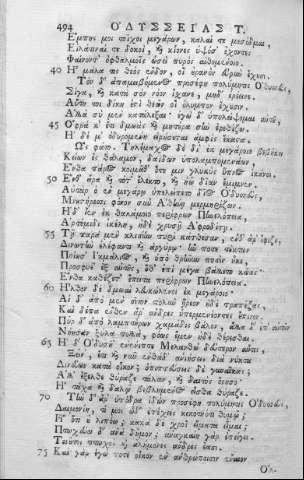 494 ὈΔΥΣΣΕΙΑΣ Τ.
Ἔμπης μοι τοῖχοι μεγάρων, καλαί τε μεσόδμαι,
Εἰλάτιναί τε δοκοὶ, καὶ κίονες ὑψόσ' ἔχοντες
Φαίνοντ' ὀφθαλμοῖς ὡσεὶ πυρὸς αἰθομένοιο.
40 Ἦ μάλα τις θεὸς ἔνδον, οἳ οὐρανὸν εὐρὺν ἔχουσι.
Τὸν δ' ἀπαμειβόμενος προσέφη πολύμητις Ὀδυσσεὺς,
Σίγα, καὶ κατὰ σὸν νόον ἴσχανε, μηδ' ἐρέεινε.
Αὕτη τοι δίκη ἐστὶ θεῶν οἳ ὄλυμπον ἔχουσιν.
Ἀλλὰ σὺ μὲν κατάλεξαι· ἐγὼ δ' ὑπολείψομαι αὐτοῦ,
45 Ὄφρα κ' ἔτι δμωὰς καὶ μητέρα σὴν ἐρεθίζω.
Ἡ δέ μ' ὀδυρομένη εἰρήσεται ἀμφὶς ἕκαστα.
Ὣς φάτο. Τηλέμαχος δὲ διὲκ μεγάροιο βεβήκει
Κείων ἐς θάλαμον, δαΐδων ὑπολαμπομενάων
Ἔνθα πάρος κοιμᾶθ' ὅτε μιν γλυκὺς ὕπνος ἱκάνοι.
50 Ἔνθ' ἄρα καὶ τότ' ἔλεκτο, καὶ ἠῶ δῖαν ἔμιμνεν.
Αὐτὰρ ὁ ἐν μεγάρῳ ὑπελείπετο δῖος Ὀδυσσεὺς,
Μνηστήρεσσι φόνον σὺν Ἀθήνῃ μερμηρίζων.
Ἡ δ' ἴεν ἐκ θαλάμοιο περίφρων Πηνελόπεια,
Ἀρτέμιδι ἰκέλη, ἠδὲ χρυσῇ Ἀφροδίτῃ.
55 Τῇ παρὰ μὲν κλισίην πυρὶ κάτθεσαν, ἔνθ' ἄρ' ἐφῖζε,
Δινωτὴν ἐλέφαντι καὶ ἀργύρῳ· ἥν ποτε τέκτων
Ποίησ' Ἰκμάλιος, καὶ ὑπὸ θρῆνυν ποσὶν ἧκε,
Προσφυέ' ἐξ αὐτῆς, ὅθ' ἐπὶ μέγα βάλλετο κῶας·
Ἔνθα καθέζετ' ἔπειτα περίφρων Πηνελόπεια.
60 Ἦλθον δὲ δμωαὶ λευκώλενοι ἐκ μεγάροιο·
Αἱ δ' ἀπὸ μὲν σῖτον πολὺν ᾕρεον ἠδὲ τραπέζας,
Καὶ δέπα ἔνθεν ἄρ' ἄνδρες ὑπερμενέοντες ἔπινον.
Πῦρ δ' ἀπὸ λαμπτήρων χαμάδις βάλον, ἄλλα δ' ἐπ' αὐτῶν
Νήησαν ξύλα πολλὰ, φόως ἔμεν ἠδὲ θέρεσθαι.
65 Ἡ δ' Ὀδυσῆ' ἐνένιπτε Μελανθὼ δεύτερον αὖτις,
Ξεῖν', ἔτι καὶ νῦν ἐνθάδ' ἀνιήσεις διὰ νύκτα
Δινεύων κατὰ οἶκον; ὀπιπτεύσεις δὲ γυναῖκας;
Ἀλλ' ἔξελθε θύραζε τάλαν, καὶ δαιτὸς ὄνησο·
Ἢ τάχα καὶ δαλῷ βεβλημένος εἶσθα θύραζε.
70 Τὴν δ' ἄρ' ὑπόδρα ἰδὼν προσέφη πολύμητις Ὀδυσσεὺς,
Δαιμονίη, τί μοι ὧδ' ἐπέχεις κεκοτηότι θυμῷ;
Ἦ ὅτι δὴ ῥυπόω; κακὰ δὲ χροῒ εἵματα εἷμαι;
Πτωχεύω δ' ἀνὰ δῆμον; ἀναγκαίη γὰρ ἐπείγει.
Τοιοῦτοι πτωχοὶ καὶ ἀλήμονες ἄνδρες ἔασι.
75 Καὶ γὰρ ἐγώ ποτε οἶκον ἐν ἀνθρώποισιν ἔναιον